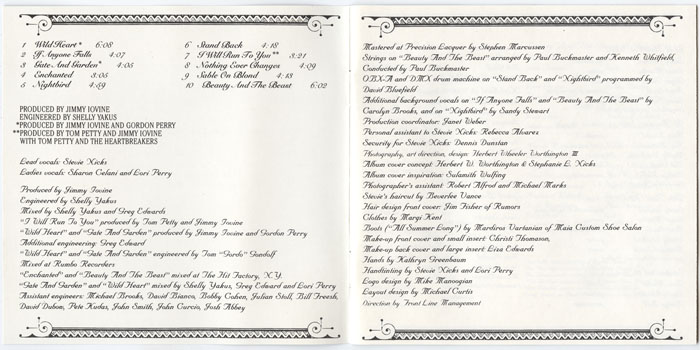 1 Wild Heart* 6:08
2 If Anyone Falls 4:07
3 Gate And Garden* 4:05
4 Enchanted 3:05
5 Nightbird 4:59
6 Stand Back 4:18
7 I Will Run To You** 3:21
8 Nothing Ever Changes 4:09
9 Sable On Blond 4:13
10 Beauty And The Beast 6:02
PRODUCED BY JIMMY IOVINE
ENGINEERED BY SHELLY YAKUS
*PRODUCED BY JIMMY IOVINE AND GORDON PERRY
**PRODUCED BY TOM PETTY AND JIMMY IOVINE
WITH TOM PETTY AND THE HEARTBREAKERS
Lead vocals: Stevie Nicks
Ladies vocals: Sharon Celani and Lori Perry
Produced by Jimmy Iovine
Engineered by Shelly Yakus
Mixed by Shelly Yakus and Greg Edwards
"I Will Run To You" produced by Tom Petty and Jimmy Iovine
"Wild Heart" and "Gate And Garden" produced by Jimmy Iovine and Gordon Perry
Additional engineering: Greg Edward
"Wild Heart" and "Gate And Garden" engineered by Tom "Gordo" Gondolf
Mixed at Rumbo Recorders
"Enchanted" and "Beauty And The Beast" mixed at The Hit Factory, N.Y.
"Gate And Garden" and "Wild Heart" mixed by Shelly Yakus, Greg Edward and Lori Perry
Assistant engineers: Michael Brooks, David Bianco, Bobby Cohen, Julian Stoll, Bill Freesh,
David Dubow, Pete Kudas, John Smith, John Curcio, Josh Abbey
Mastered at Precision Lacquer by Stephen Marcussen
Strings on "Beauty And The Beast" arranged by Paul Buckmaster and Kenneth Whitfield,
Conducted by Paul Buckmaster
OBX-A and DMX drum machine on "Stand Back" and "Nightbird" programmed by
David Bluefield
Additional background vocals on "If Anyone Falls" and "Beauty And The Beast" by
Carolyn Brooks, and on "Nightbird" by Sandy Stewart
Production coordinator: Janet Weber
Personal assistant to Stevie Nicks: Rebecca Alvarez
Security for Stevie Nicks: Dennis Dunstan
Photography, art direction, design: Herbert Wheeler Worthington III
Album cover concept: Herbert W. Worthington & Stephanie L. Nicks
Album cover inspiration: Sulamith Wulfing
Photographer's assistant: Robert Alfred and Michael Marks
Stevie's haircut by Beverlee Vance
Hair design front cover: Jim Fisher of Rumors
Clothes by Margi Kent
Boots ("All Summer Long") by Mardiros Vartanian of Maia Custom Shoe Salon
Make-up front cover and small insert: Christi Thomason,
Make-up back cover and large insert: Liza Edwards
Hands by Kathryn Greenbaum
Handtinting by Stevie Nicks and Lori Perry
Logo design by Mike Manoogian
Layout design by Michael Curtis
Direction by Front Line Management